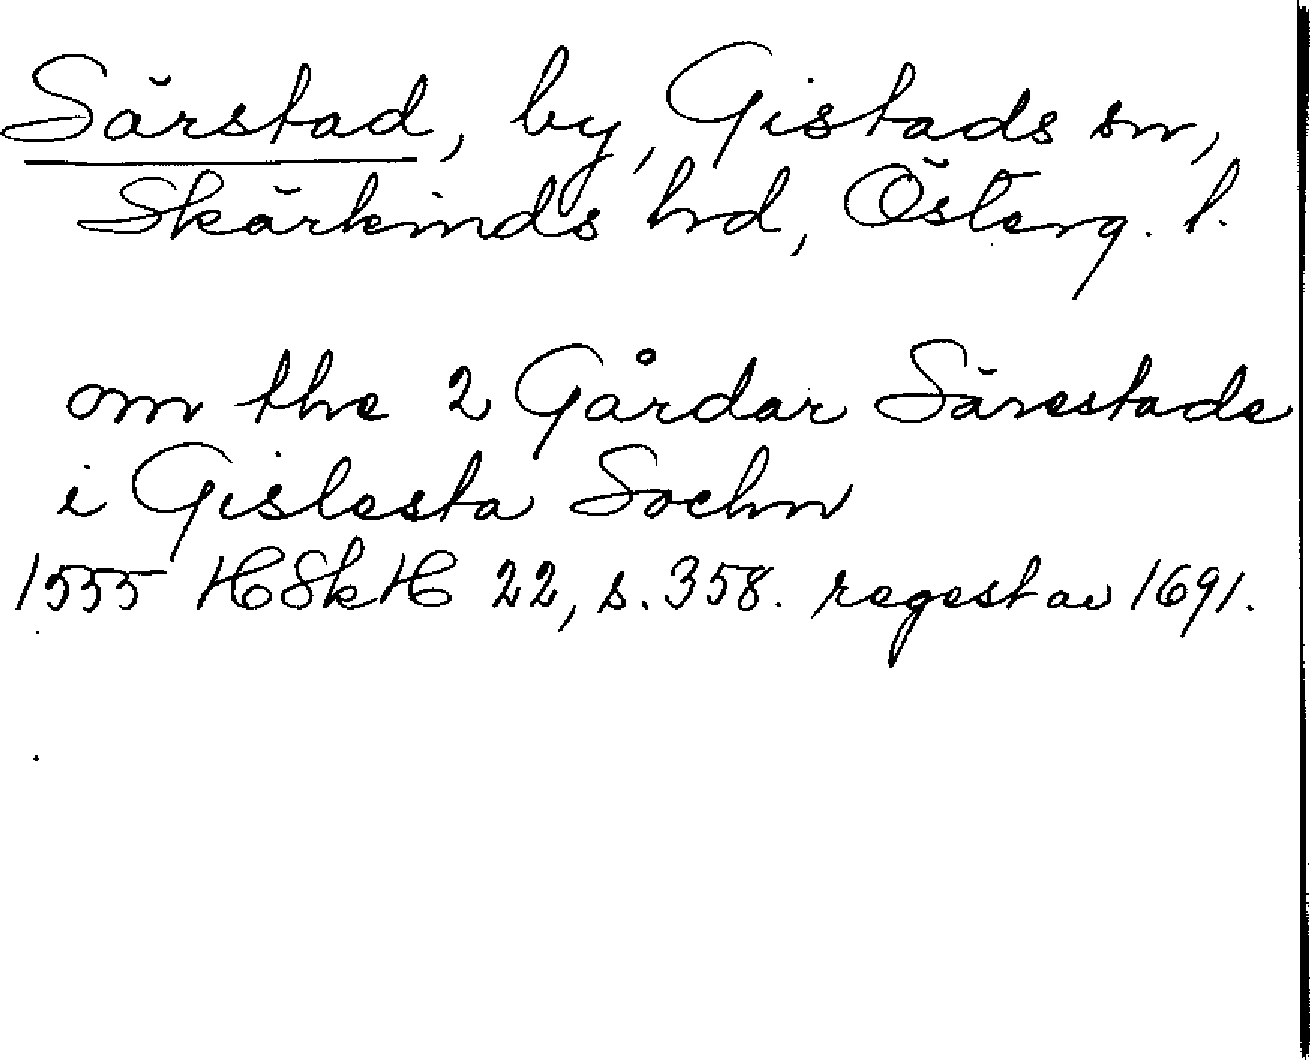 Särstad, by, Gistads sn,
Skärkinds hrd, Österg. l.
om the 2 Gårdar Särestade
i Gislesta Sochn
1555 HSkH 22, s. 358. regest av 1691.